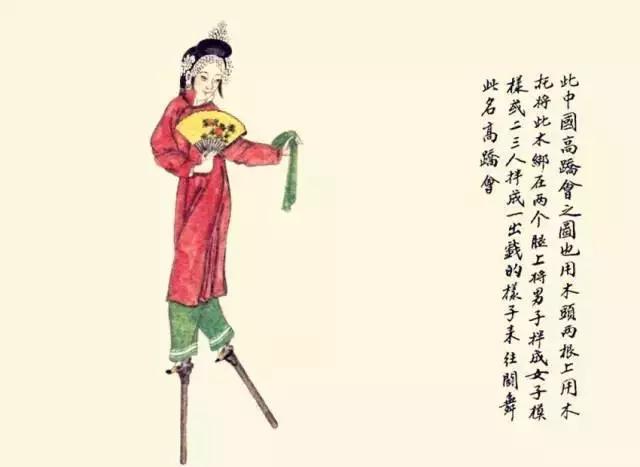 此中國高蹻會之圖也用木頭两根上用木
托将此木綁在两个腿上將男子拌成女子模
様或二三人拌成一出戲的樣子来往鬪舞
此名高蹻會